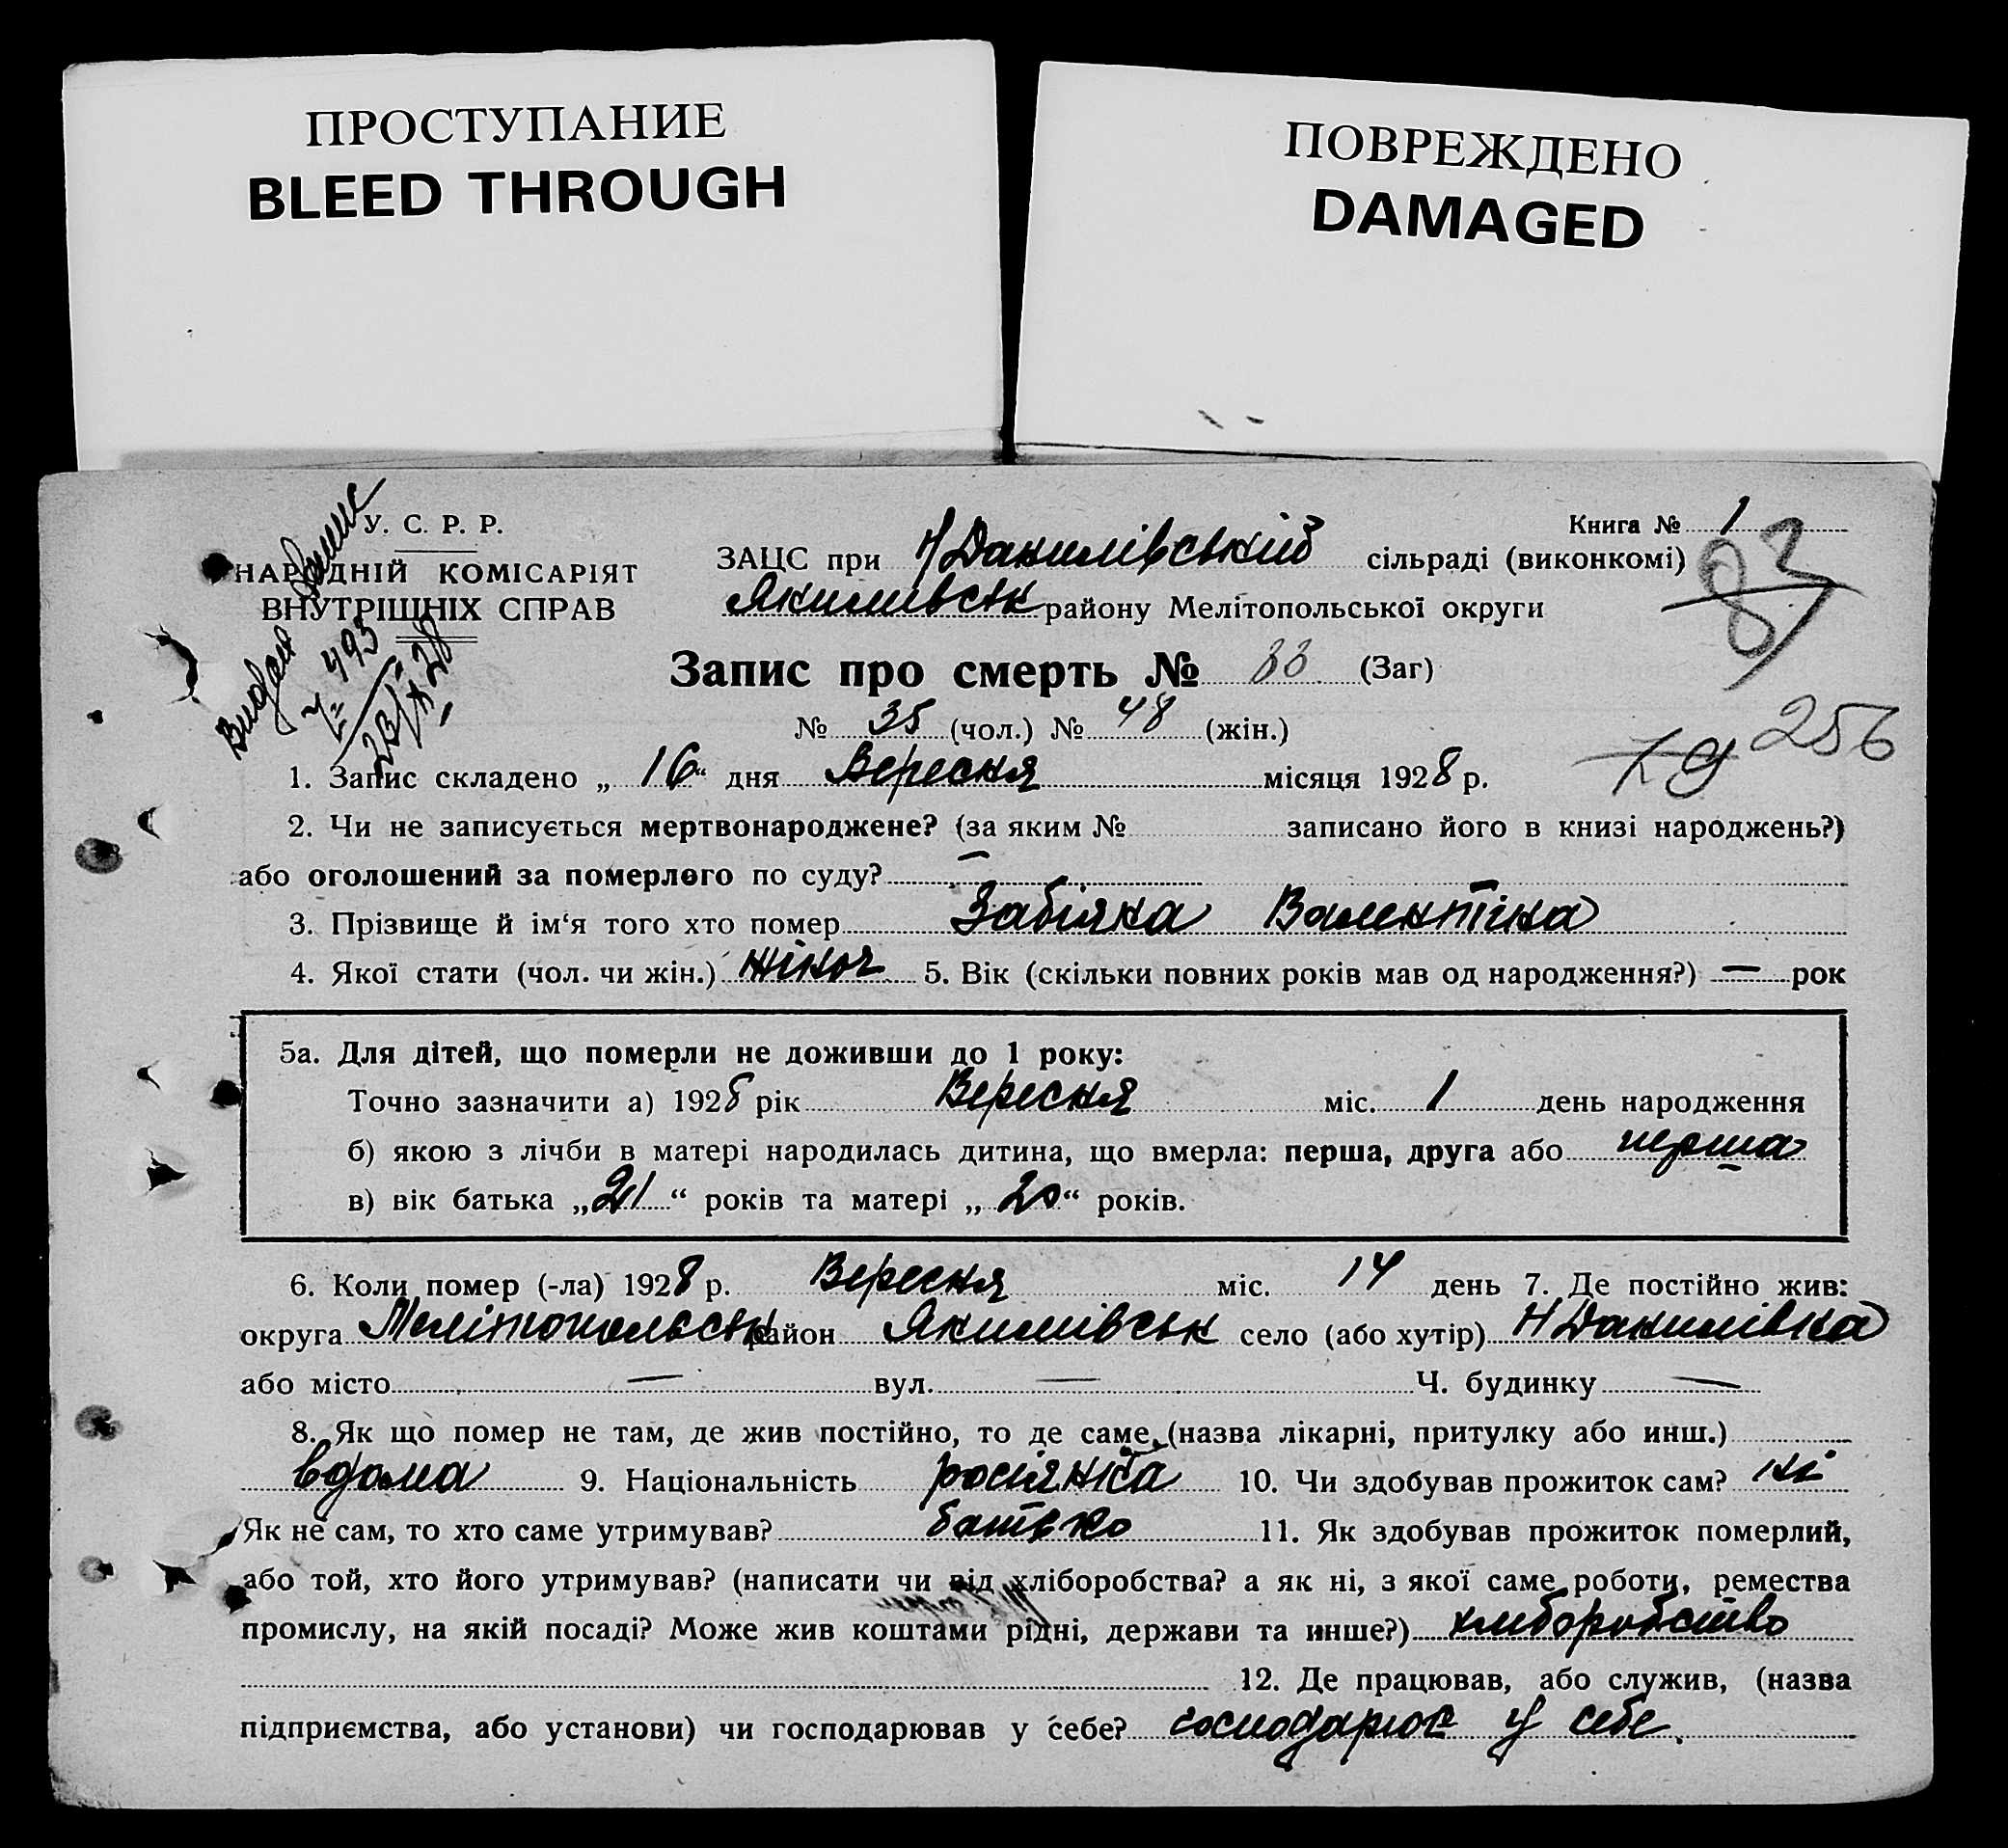 ПРОСТУПАНИЕ
BLEED THROUGH
ПОВРЕЖДЕНО
DAMAGED
У. С. Р. Р.
НАРОДНІЙ КОМІСАРІЯТ
ВНУТРІШНІХ СПРАВ
Книга № 1
ЗАЦС при Н Данилівський сільраді (виконкомі)
Якимівськ району Мелітопольської округи
83
Запис про смерть № 83 (Заг)
№ 35 (чол.) № 48 (жін.)
256
1. Запис складено „ 16 “ дня Вересня місяця 1928 р.
2. Чи не записується мертвонароджене? (за яким № записано його в книзі народжень?)
або оголошений за померлого по суду? —
3. Прізвище й ім‘я того хто помер Забіяка Валентіна
4. Якої стати (чол. чи жін.) жіноч 5. Вік (скільки повних років мав од народження?) — рок
5а. Для дітей, що померли не доживши до 1 року:
Точно зазначити а) 1928 рік Вересня міс. 1 день народження
б) якою з лічби в матері народилась дитина, що вмерла: перша, друга або перша
в) вік батька „ 21 “ років та матері „ 20 “ років.
6. Коли помер (-ла) 1928 р. Вересня міс. 14 день 7. Де постійно жив:
округа Мелітопольськ район Якимівськ село (або хутір) Н Данилівка
або місто — вул. — Ч. будинку —
8. Як що помер не там, де жив постійно, то де саме (назва лікарні, притулку або инш.)
вдома 9. Національність росіянка 10. Чи здобував прожиток сам? ні
Як не сам, то хто саме утримував? батько 11. Як здобував прожиток померлий,
або той, хто його утримував? (написати чи від хліборобства? а як ні, з якої саме роботи, ремества
промислу, на якій посаді? Може жив коштами рідні, держави та инше?) хліборобство
12. Де працював, або служив, (назва
підприємства, або установи) чи господарював у себе? господарює у себе.